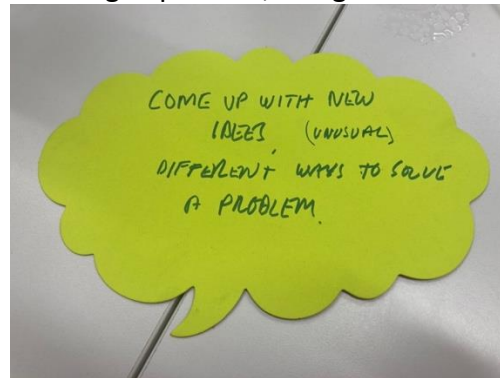 COME UP WITH NEW
IDEES, (UNUSUAL)
DIFFERENT WAYS TO SOLVE
A PROBLEM.